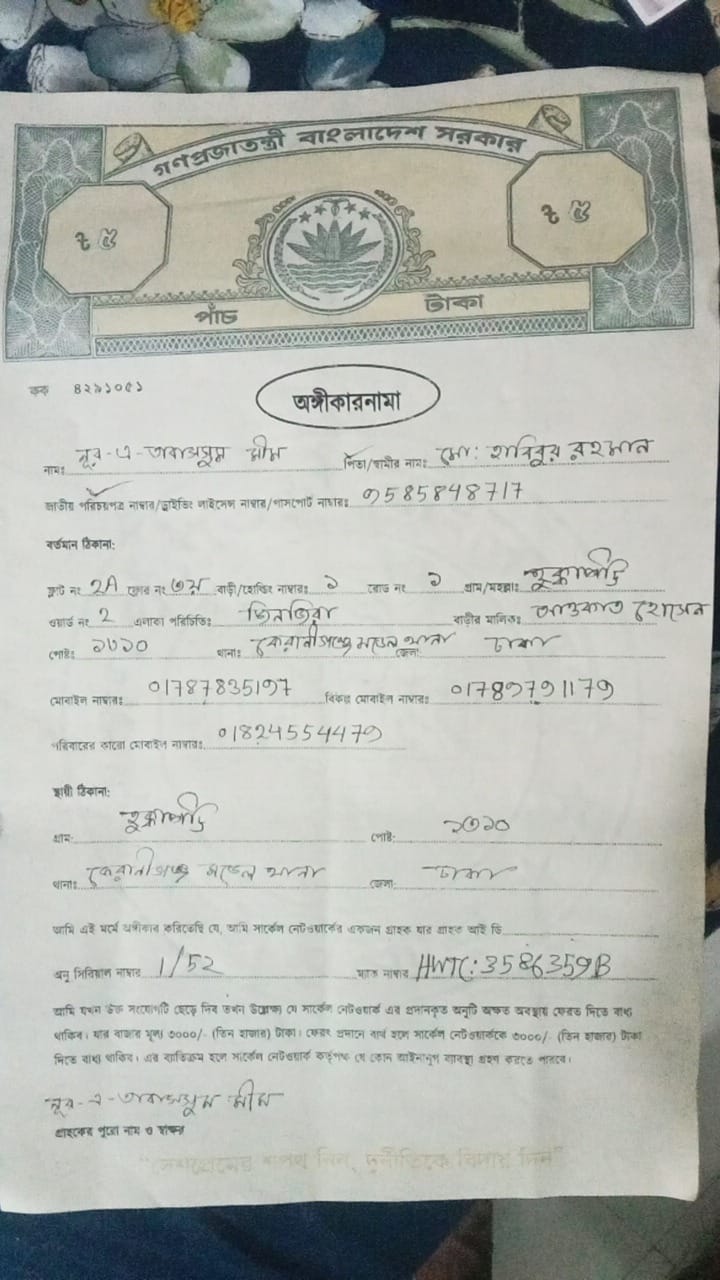 গণপ্রজাতন্ত্রী বাংলাদেশ সরকার
৳ ৫ ৳ ৫
পাঁচ টাকা
কক ৪২৯১০৫১
অঙ্গীকারনামা
নামঃ নূর-এ-তাবাসসুম মীম পিতা/স্বামীর নামঃ মো: হাবিবুর রহমান
জাতীয় পরিচয়পত্র নাম্বার/ড্রাইভিং লাইসেন্স নাম্বার/পাসপোর্ট নাম্বারঃ 9585848717
বর্তমান ঠিকানা:
ফ্লাট নং 2A ফ্লোর নং ৩য় বাড়ী/হোল্ডিং নাম্বারঃ ১ রোড নং ১ গ্রাম/মহল্লাঃ
ওয়ার্ড নং 2 এলাকা পরিচিতিঃ জিনজিরা বাড়ীর মালিকঃ হোসেন
পোষ্টঃ ১৩১০ থানাঃ কেরানীগঞ্জ মডেল থানা জেলা: ঢাকা
মোবাইল নাম্বারঃ 01787835197 বিকল্প মোবাইল নাম্বারঃ 01789791179
পরিবারের কারো মোবাইল নাম্বারঃ 01824554479
স্থায়ী ঠিকানা:
গ্রাম: পোষ্ট: ১৩১০
থানাঃ কেরানীগঞ্জ মডেল থানা জেলা: ঢাকা
আমি এই মর্মে অঙ্গীকার করিতেছি যে, আমি সার্কেল নেটওয়ার্কের একজন গ্রাহক যার গ্রাহক আই ডি
অনু সিরিয়াল নাম্বার 1/52 ম্যাক নাম্বার HWTC:3586359B
আমি যখন উক্ত সংযোগটি ছেড়ে দিব তখন উল্লেখ্য যে সার্কেল নেটওয়ার্ক এর প্রদানকৃত অনুটি অক্ষত অবস্থায় ফেরত দিতে বাধ্য
থাকিব। যার বাজার মূল্য ৩০০০/- (তিন হাজার) টাকা। ফেরৎ প্রদানে ব্যর্থ হলে সার্কেল নেটওয়ার্ককে ৩০০০/- (তিন হাজার) টাকা
দিতে বাধ্য থাকিব। এর ব্যতিক্রম হলে সার্কেল নেটওয়ার্ক কর্তৃপক্ষ যে কোন আইনানুগ ব্যবস্থা গ্রহণ করতে পারবে।
নূর-এ-তাবাসসুম মীম
গ্রাহকের পুরো নাম ও স্বাক্ষর
"দেশপ্রেমের শপথ নিন, দুর্নীতিকে বিদায় দিন"